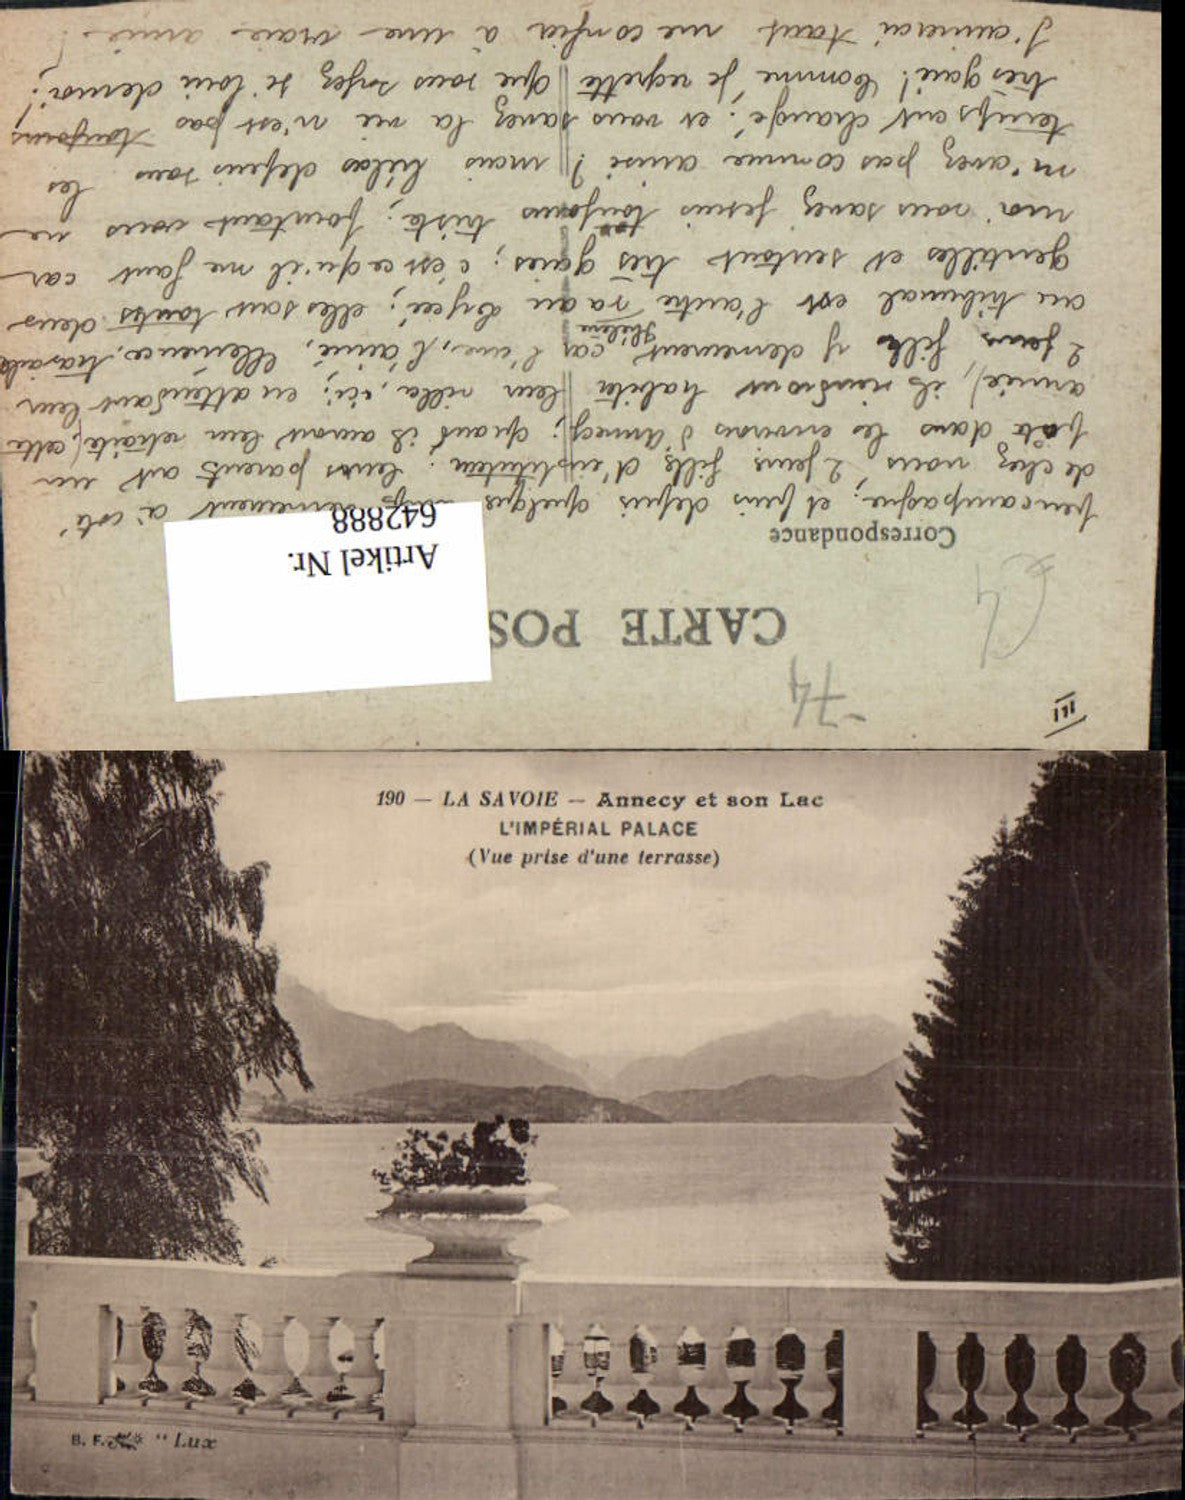 III
74
CARTE POS
Artikel Nr.
642888
Correspondance
campagne; et puis depuis quelque demeurent à côté
de chez nous, 2 jeunes filles d'instituteur. Leurs parents ont un
dans les environs d'Annecy; quand ils auront leur retraite, cette
année, ils viendront habiter leur villa, ici; en attendant leur
2 jeunes filles y demeurent car l'une, l'aînée, Clémence, travaille
au tribunal et l'autre Hélène va au lycée; elles sont toutes deux
gentilles et surtout très gaies; c'est ce qu'il me faut car
moi vous savez je suis toujours triste; pourtant vous ne
m'avez pas connue ainsi? mais hélas depuis tous les
temps ont changé! et vous savez la vie n'est pas toujours
très gaie! Comme je regrette que vous soyez si loin de moi!
J'aimerai tant me confier à une vraie amie!
190 — LA SAVOIE — Annecy et son Lac
L'IMPÉRIAL PALACE
(Vue prise d'une terrasse)
B. F. "Lux